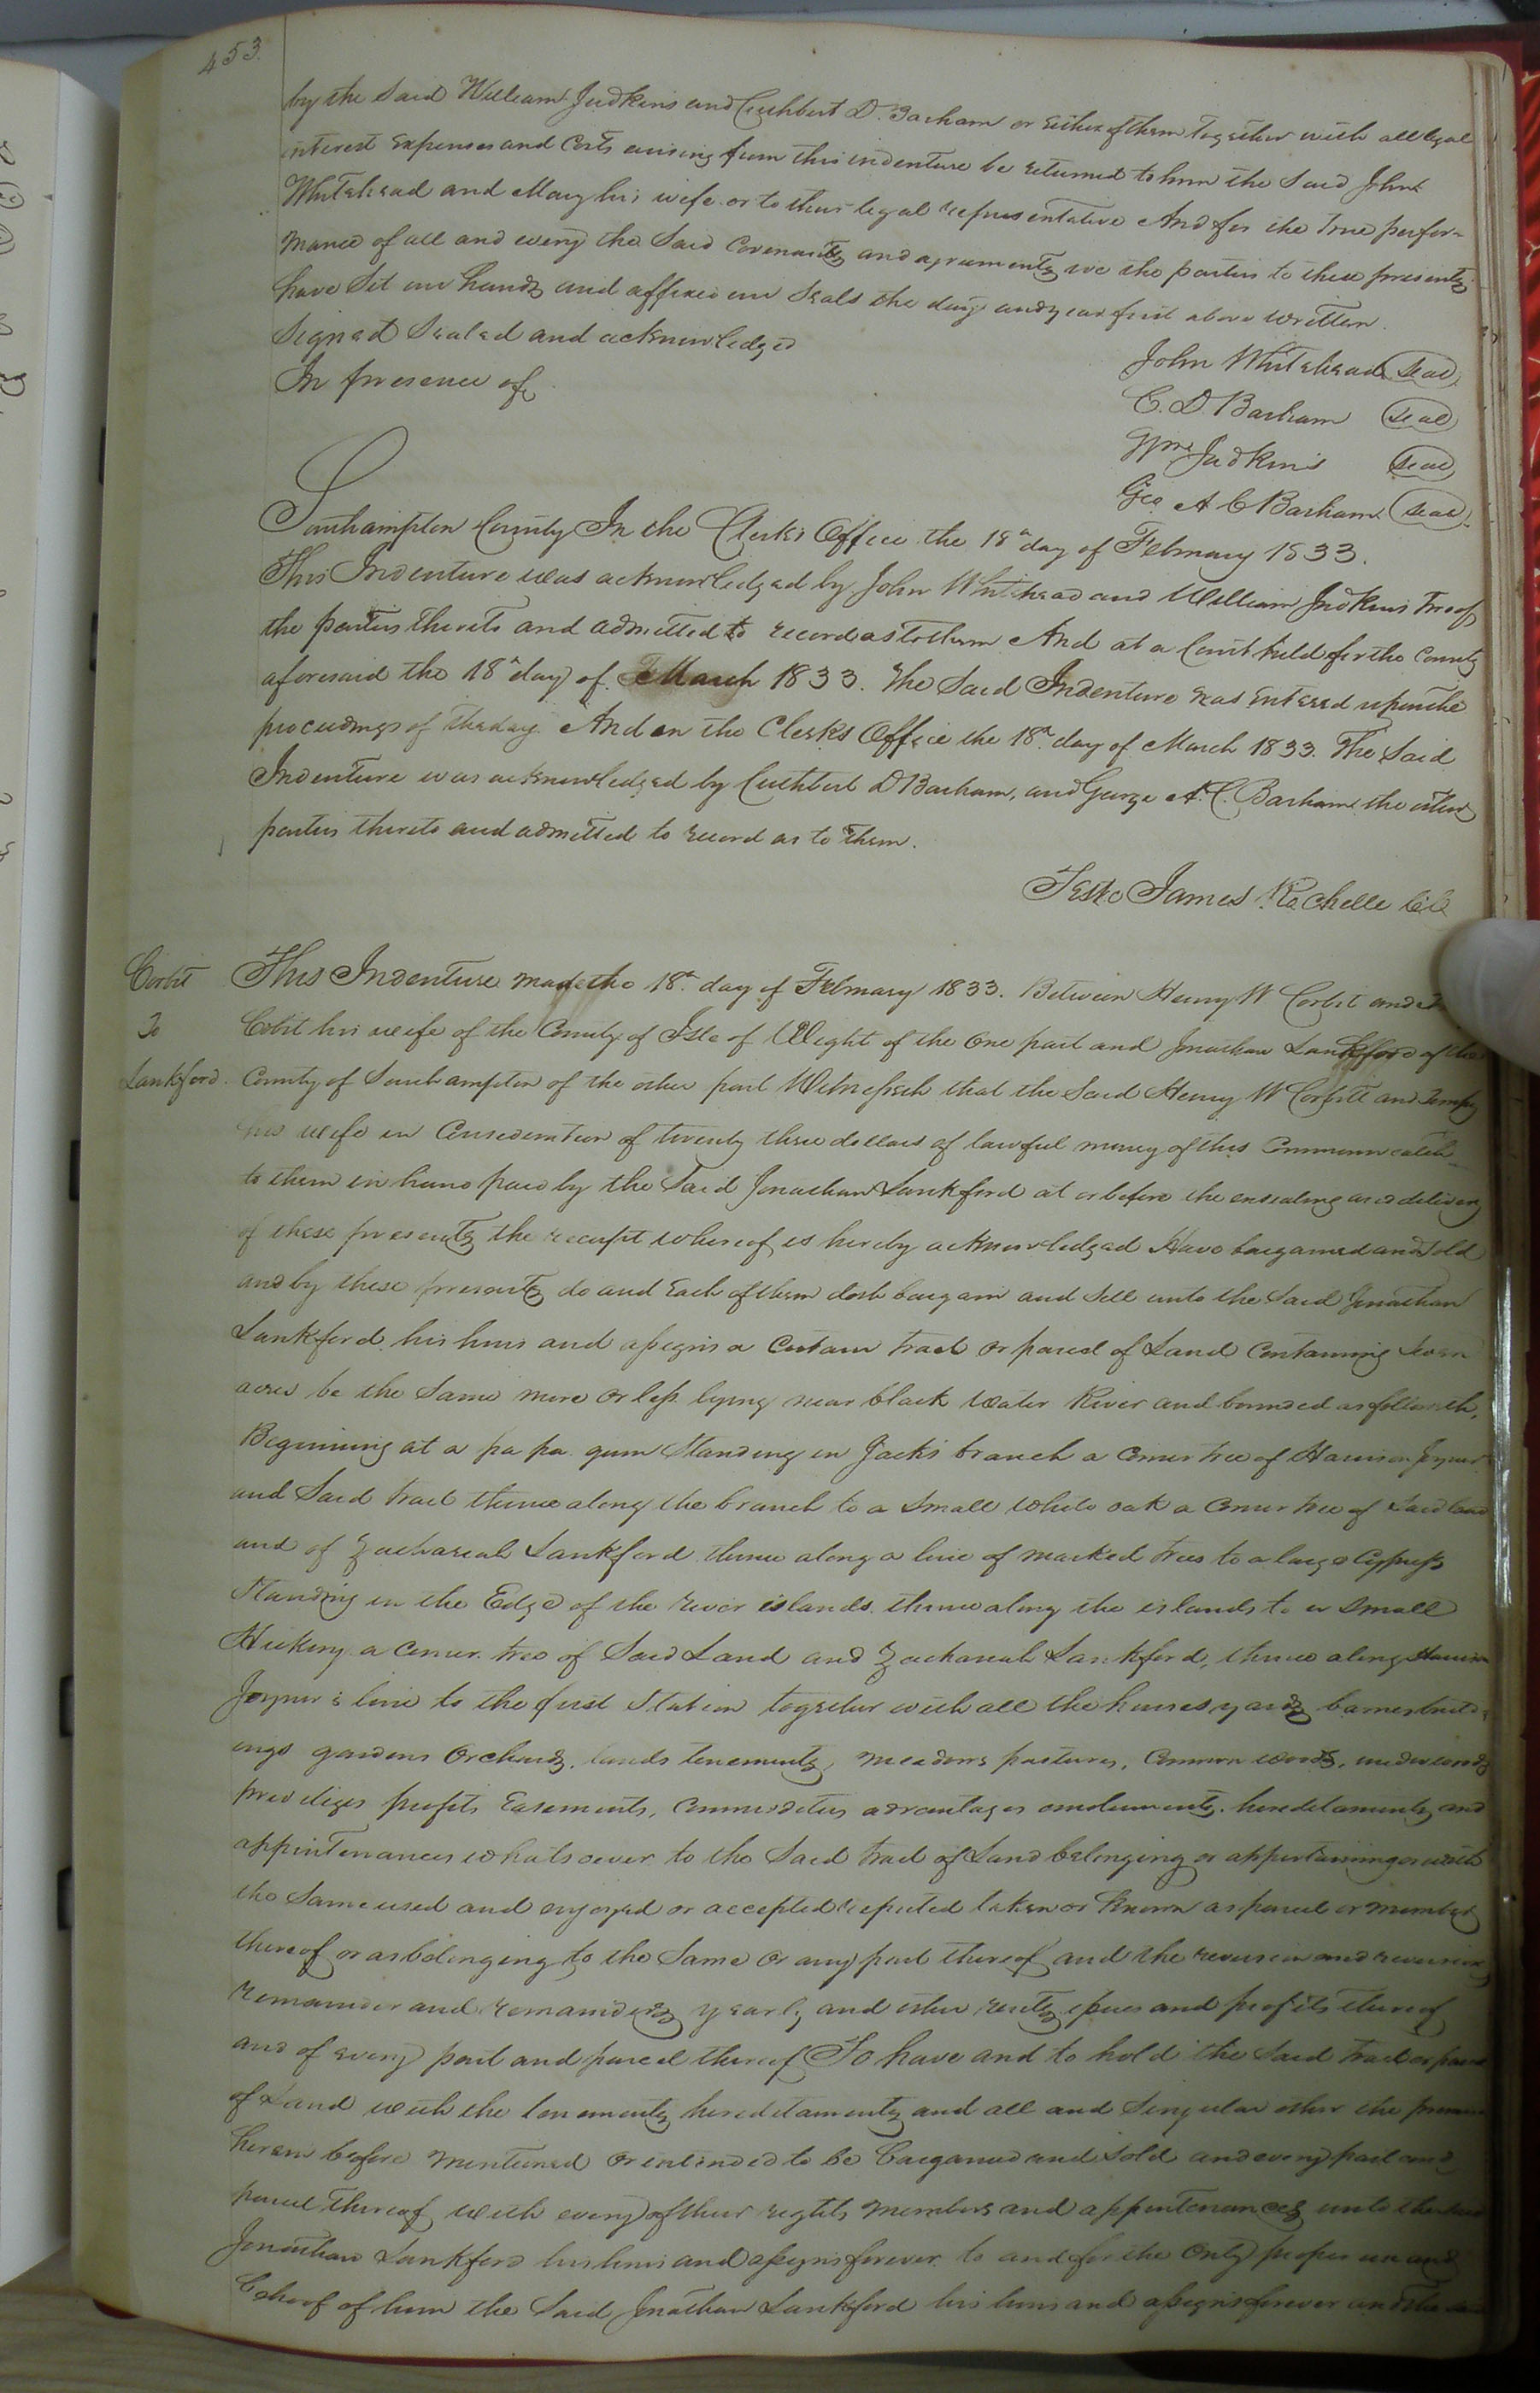 453.
by the Said William Judkins and Cuthbert D. Barham or either of them together with all legal
interest expenses and Costs arising from this indenture be returned to him the Said John
Whitehead and Mary his wife or to their legal representative And for the true perfor-
mance of all and every the Said Covenants and agreements we the parties to these presents
have Set our hands and affixed our Seals the day and year first above written.
Signed Sealed and acknowledged
In presence of
John Whitehead Seal
C. D. Barham Seal
Wm. Judkins Seal
Geo. A C Barham Seal
Southampton County In the Clerks Office the 18th day of February 1833.
This Indenture was acknowledged by John Whitehead and William Judkins two of
the parties thereto and admitted to record as to them And at a Court held for the County
aforesaid the 18th day of March 1833. The Said Indenture was entered upon the
proceedings of the day. And in the Clerks Office the 18th day of March 1833. The Said
Indenture was acknowledged by Cuthbert D Barham, and George A. C. Barham the other
parties thereto and admitted to record as to them.
Teste James Rochelle
Corbit
To
Lankford.
This Indenture made the 18th day of February 1833. Between Henry W Corbit and
Corbit his wife of the County of Isle of Wight of the one part and Jonathan Lankford of the
County of Southampton of the other part Witnesseth that the Said Henry W Corbitt and Tempy
his wife in Consideration of twenty three dollars of lawful money of this Commonwealth
to them in hand paid by the Said Jonathan Lankford at or before the ensealing and delivery
of these presents the receipt whereof is hereby acknowledged Have bargained and Sold
and by these presents do and Each of them doth bargain and Sell unto the Said Jonathan
Lankford his heirs and assigns a Certain tract or parcel of Land Containing Seven
acres be the Same more or less lying near black water River and bounded as followeth,
Beginning at a pa pa gum Standing in Jacks branch a Corner tree of Harrison Joyner
and Said tract thence along the branch to a Small white oak a Corner tree of Said land
and of Zachariah Lankford thence along a line of marked trees to a large Cypress
Standing in the Edge of the river islands thence along the islands to a Small
Hickory a Corner tree of Said Land and Zachariah Lankford, thence along Harrison
Joyner's line to the first Station together with all the houses yards barnes build-
ings gardens Orchards, lands tenements, meadows pastures, Common woods, underwoods
previliges profits Easements, Commodities advantages emoluments. hereditaments and
appurtenances whatsoever to the Said tract of Land belonging or appertaining or with
the Same used and enjoyed or accepted reputed taken or Known as parcel or member
thereof or as belonging to the Same or any part thereof and the reversion and reversions
remainder and remainders yearly and other rents issues and profits thereof
and of every part and parcel thereof To have and to hold the Said tract or parcel
of Land with the tenements hereditaments and all and Singular other the
herein before mentioned or intended to be bargained and Sold and every part and
parcel thereof with every of their rights members and appurtenances unto the Said
Jonathan Lankford his heirs and assigns forever to and for the only proper use and
behoof of him the Said Jonathan Lankford his heirs and assigns forever and the